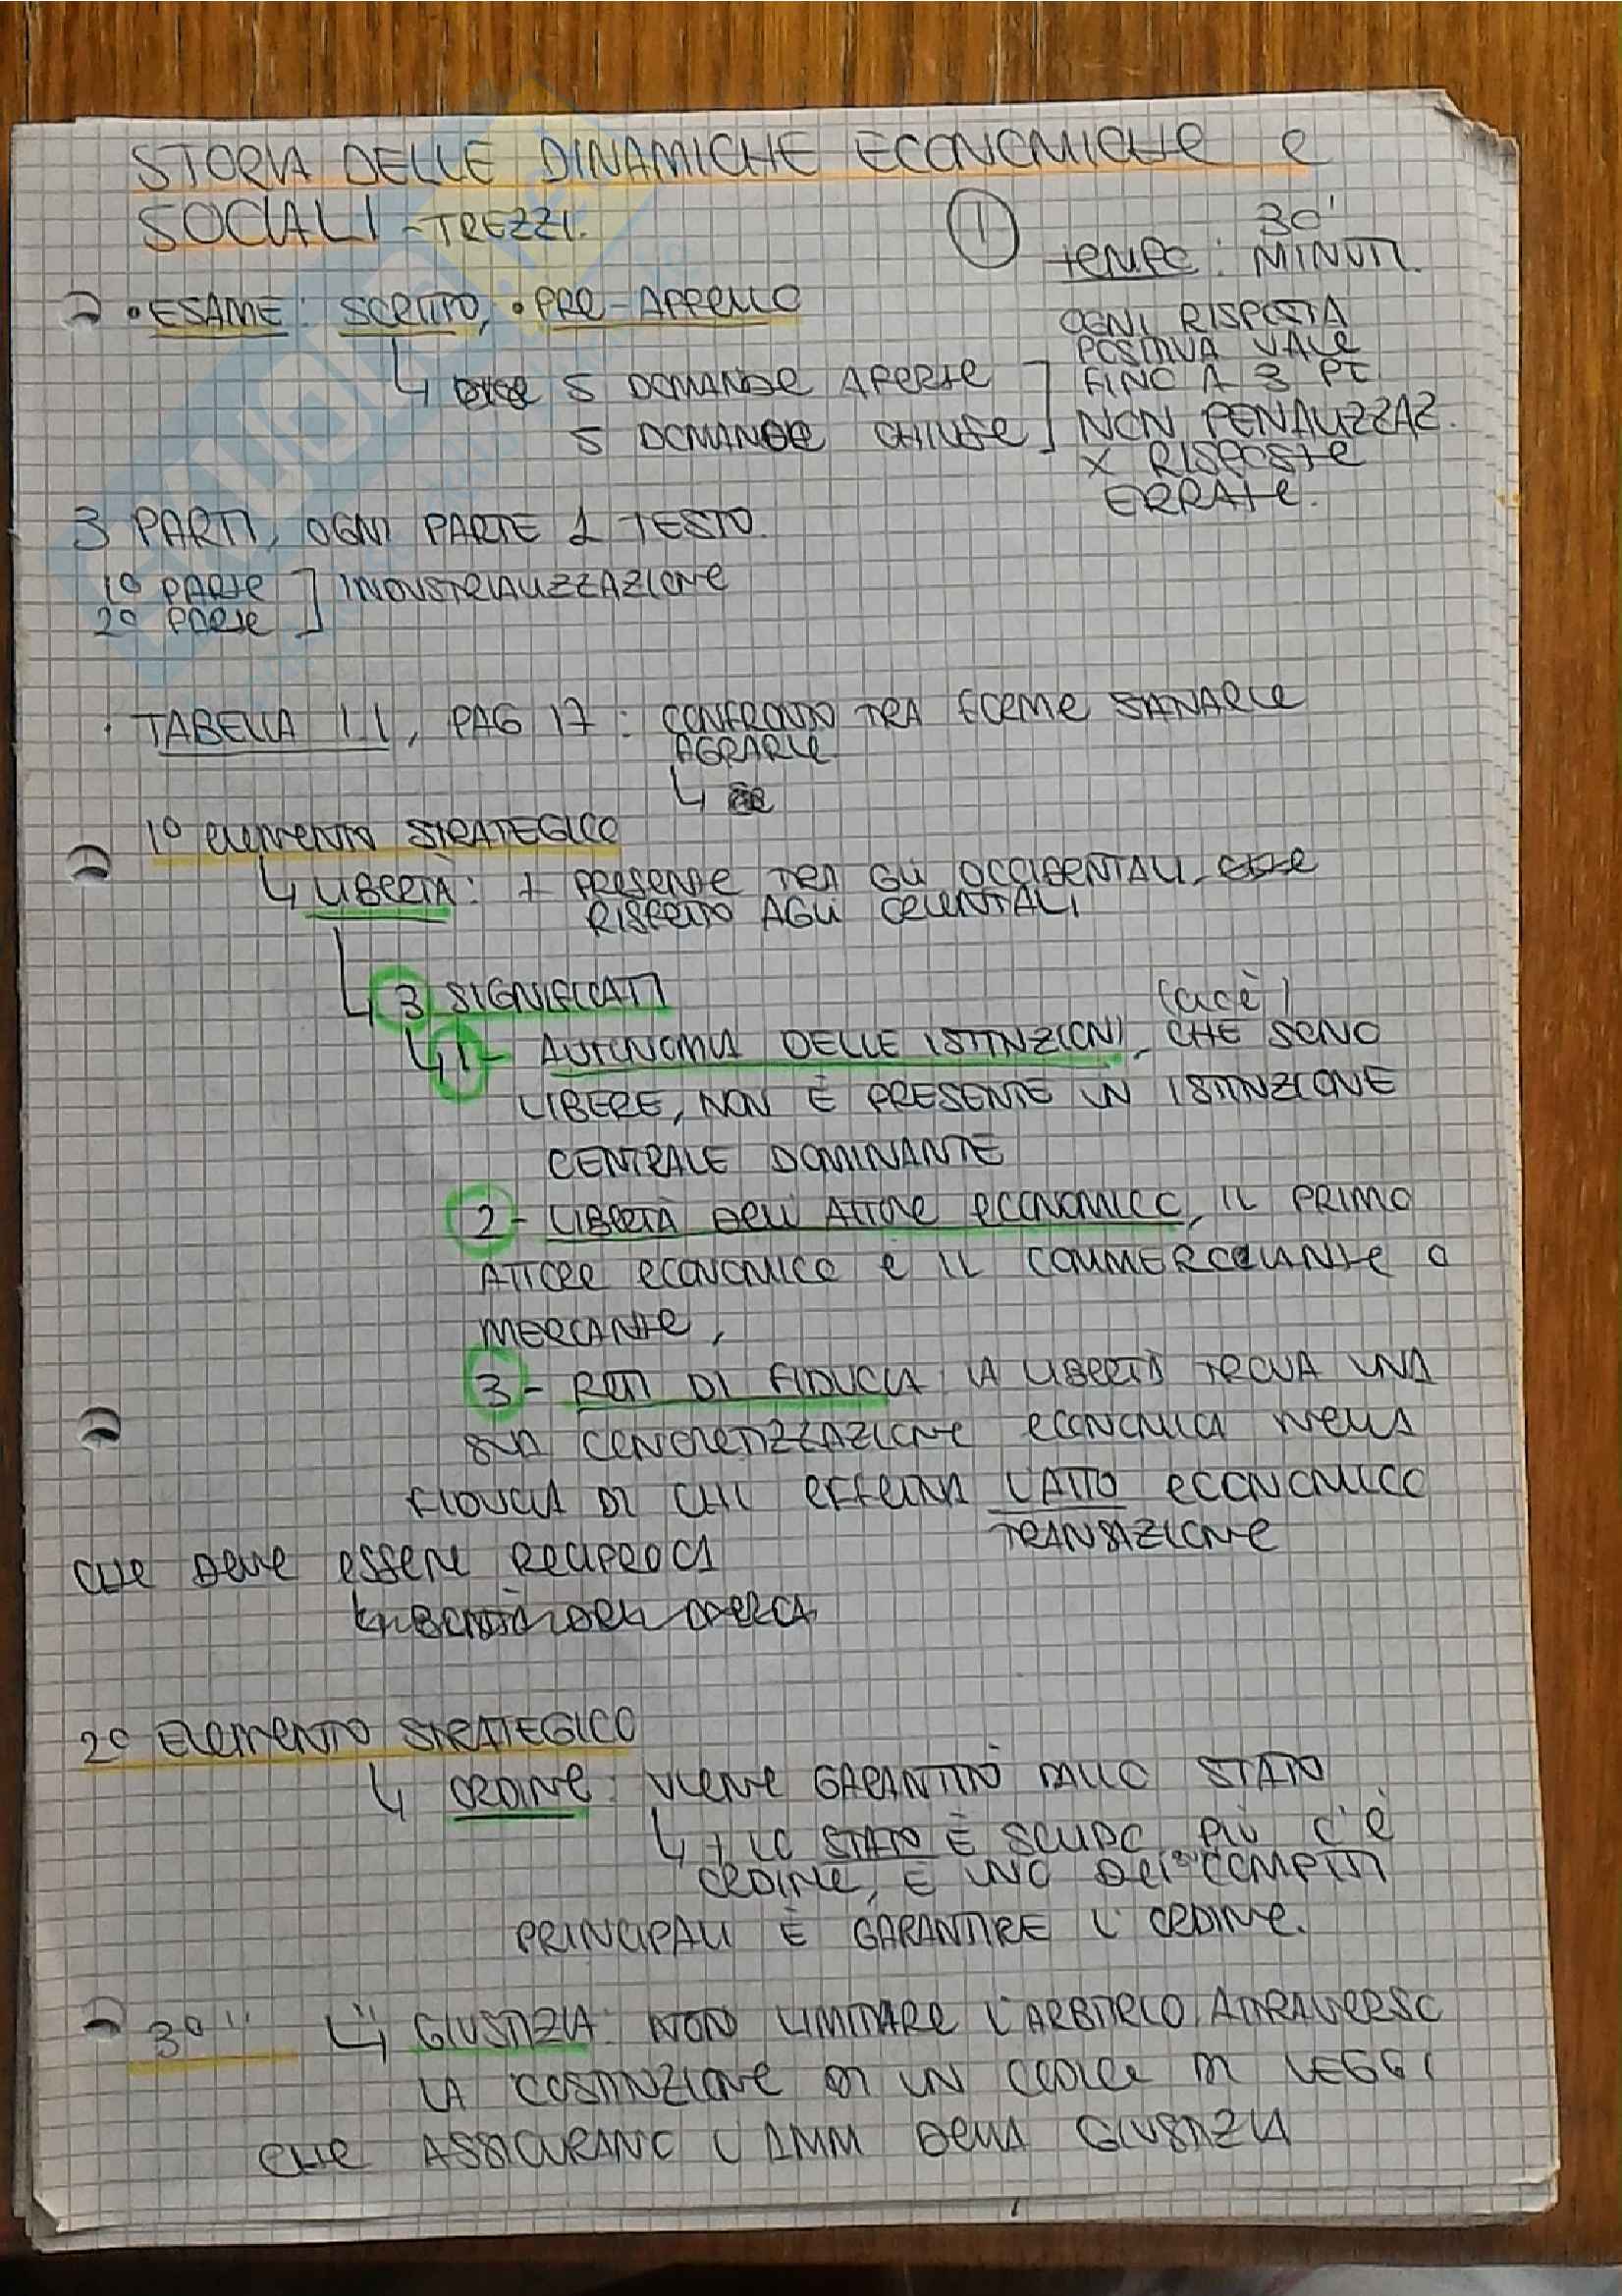 STORIA DELLE DINAMICHE ECONOMICHE e
SOCIALI - TREZZI.
1
30'
tempo: MINUTI.
• ESAME: SCRITTO, • PRE-APPELLO
5 DOMANDE APERTE
5 DOMANDE CHIUSE
OGNI RISPOSTA
POSITIVA VALE
FINO A 3 PT
NON PENALIZZAZ.
X RISPOSTE
ERRATE.
3 PARTI, OGNI PARTE 1 TESTO.
1° PARTE
2° PARTE
INDUSTRIALIZZAZIONE
• TABELLA 1.1, PAG 17: CONFRONTO TRA FORME
AGRARIE
1° elemento STRATEGICO
LIBERTÀ: + PRESENTE TRA GLI OCCIDENTALI
RISPETTO AGLI ORIENTALI
3 SIGNIFICATI
(cioè)
1- AUTONOMIA DELLE ISTITUZIONI, CHE SONO
LIBERE, NON È PRESENTE UN ISTITUZIONE
CENTRALE DOMINANTE
2- LIBERTÀ DELL'ATTORE ECONOMICO, IL PRIMO
ATTORE ECONOMICO È IL COMMERCIANTE O
MERCANTE,
3- RETI DI FIDUCIA: LA LIBERTÀ TROVA UNA
SUA CONCRETIZZAZIONE ECONOMICA NELLA
FIDUCIA DI CHI EFFETTUA L'ATTO ECONOMICO
TRANSAZIONE
CHE DEVE ESSERE RECIPROCA
2° ELEMENTO STRATEGICO
ORDINE: VIENE GARANTITO DALLO STATO
+ LO STATO È SOLIDO PIÙ C'È
ORDINE, E UNO DEI COMPITI
PRINCIPALI È GARANTIRE L'ORDINE.
3° " " GIUSTIZIA: LIMITARE L'ARBITRIO ATTRAVERSO
LA COSTITUZIONE DI UN CODICE DI LEGGI
CHE ASSICURANO L'AMM DELLA GIUSTIZIA